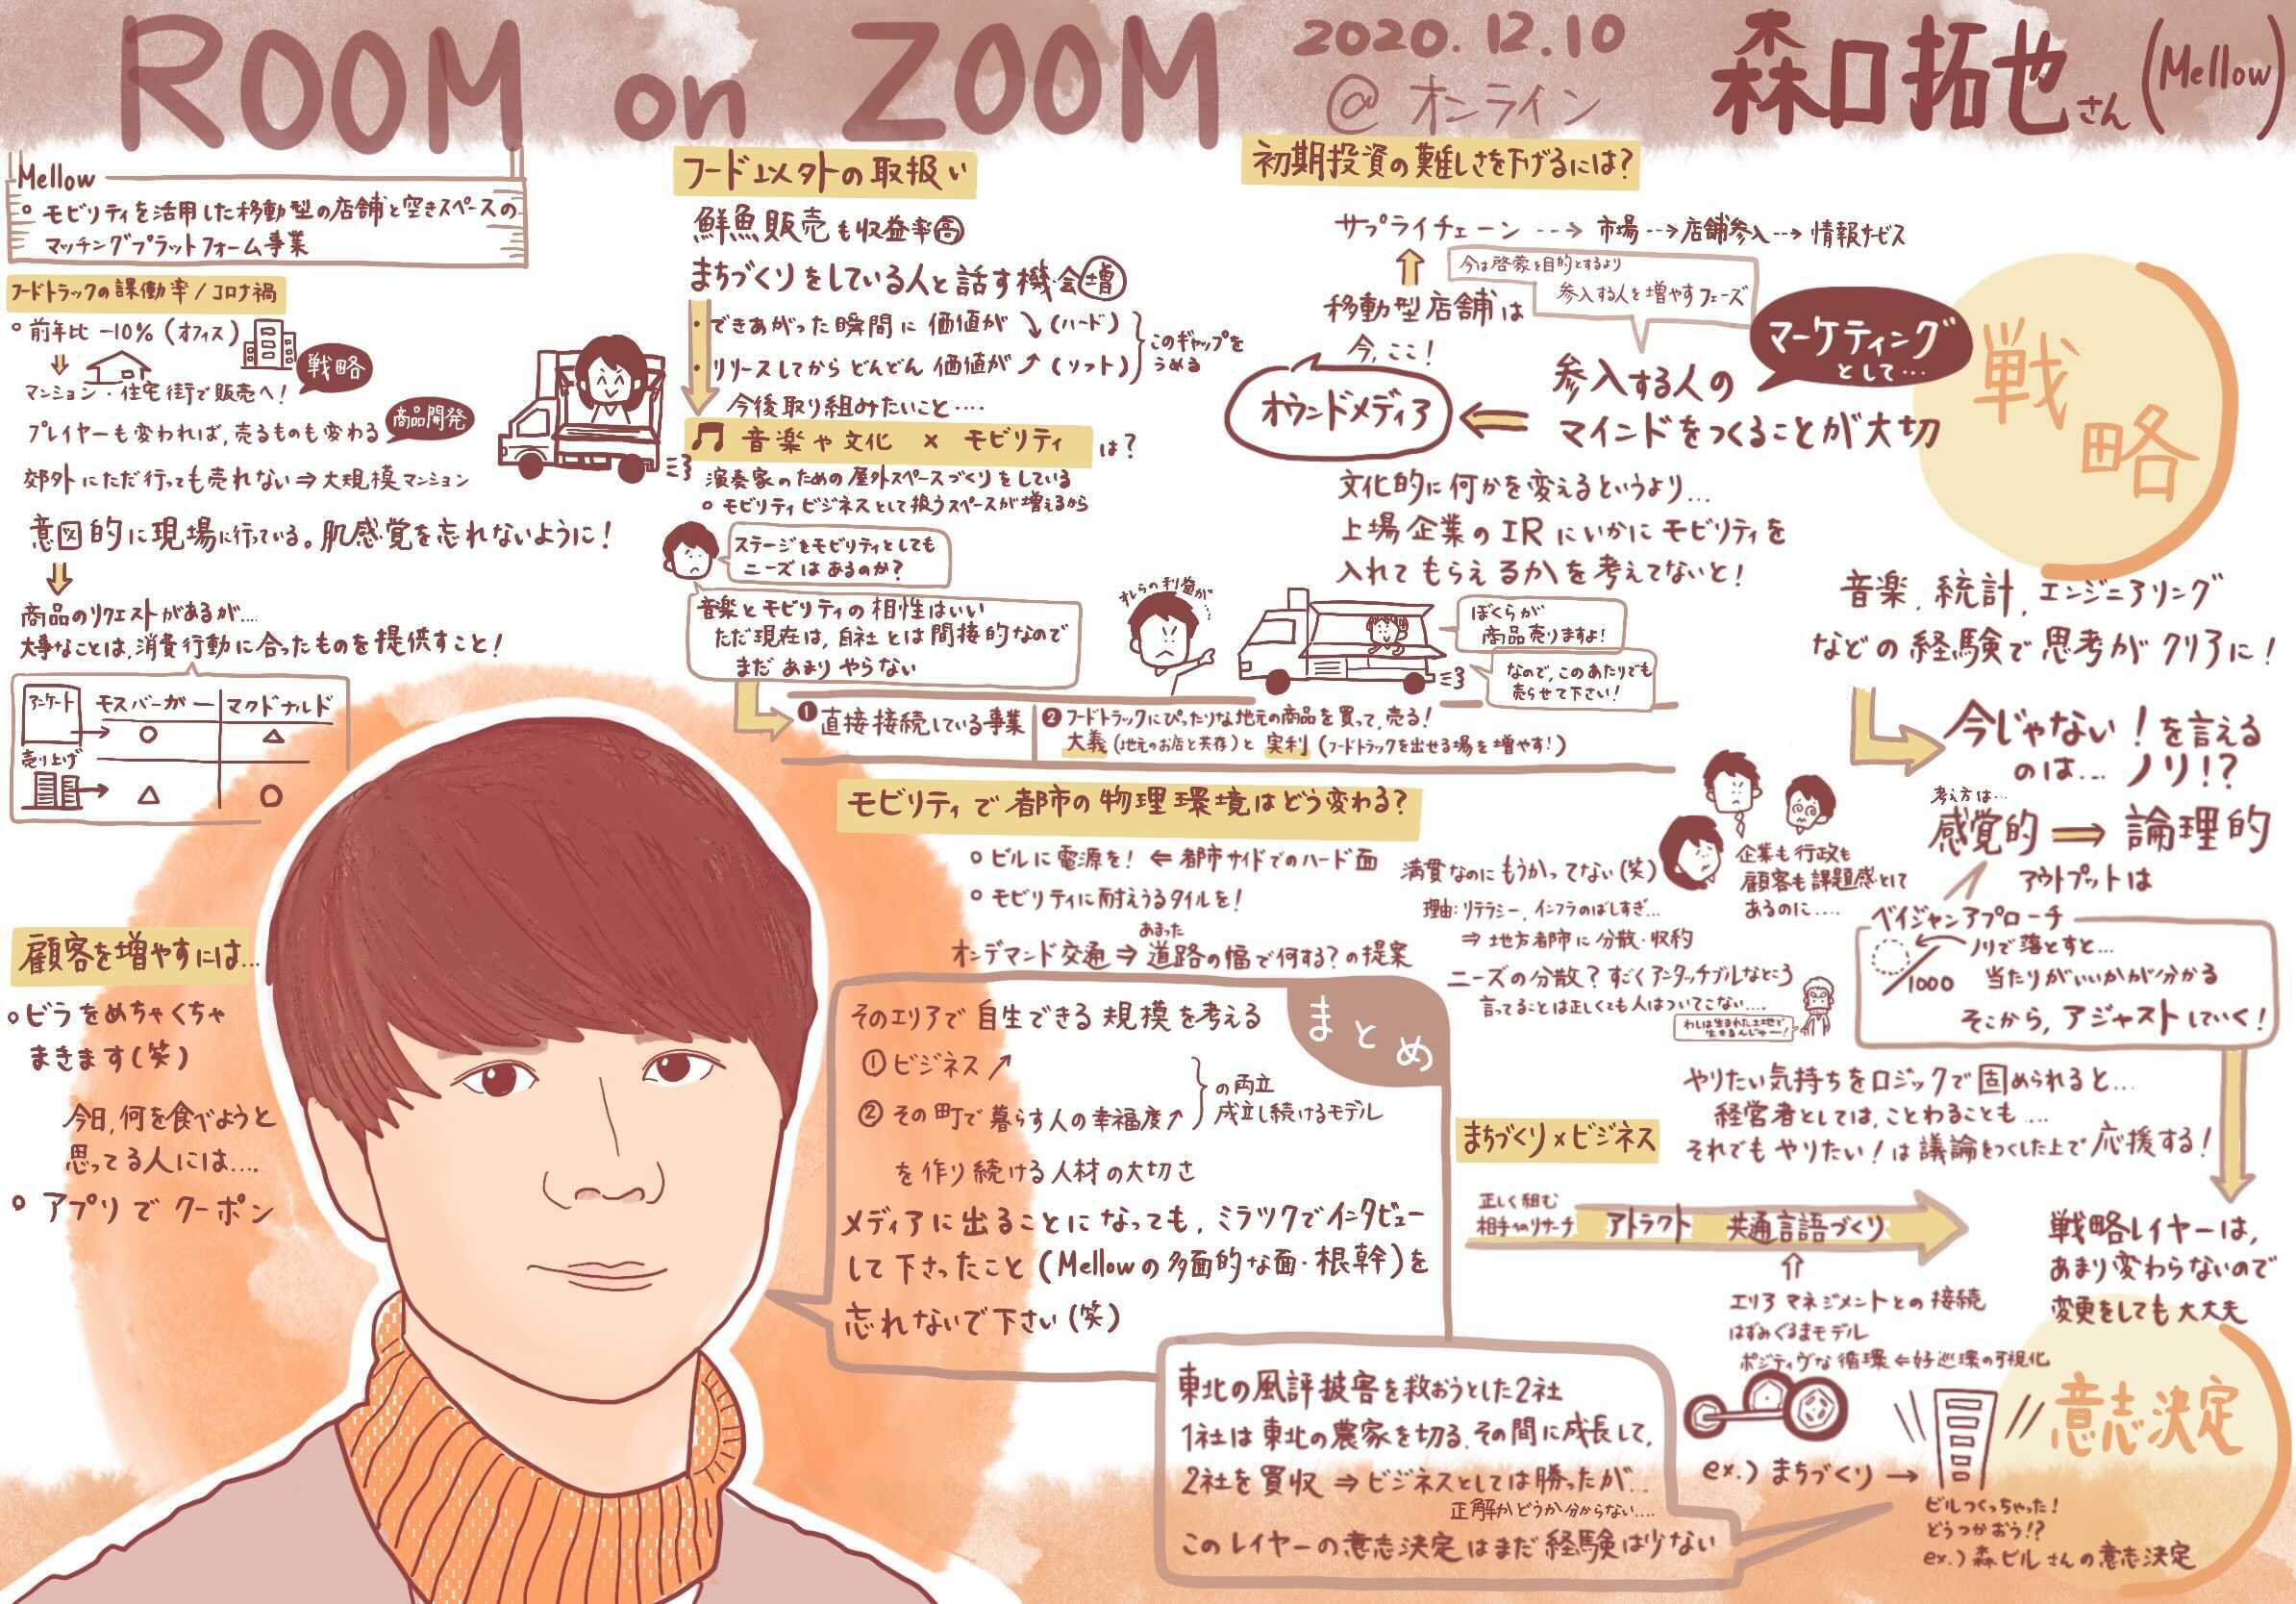 ROOM on ZOOM
2020.12.10
@ オンライン
森口拓也さん (Mellow)
Mellow
モビリティを活用した移動型の店舗と空きスペースの
マッチングプラットフォーム事業
フードトラックの課働率/コロナ禍
前年比 -10% (オフィス)
戦略
マンション・住宅街で販売へ!
プレイヤーも変われば,売るものも変わる
商品開発
郊外にただ行っても売れない⇒大規模マンション
意図的に現場に行っている。肌感覚を忘れないように!
商品のリクエストがあるが….
大事なことは,消費行動に合ったものを提供すること!
アンケート
モスバーガー
マクドナルド
→ ○ △
売り上げ
→ △ ○
顧客を増やすには…
ビラをめちゃくちゃ
まきます(笑)
今日,何を食べようと
思ってる人には….
アプリで クーポン
フード以外の取扱い
鮮魚販売も収益率高
まちづくりをしている人と話す機会増
・できあがった瞬間に 価値が ↘ (ハード)
・リリースしてから どんどん 価値が ↗ (ソフト)
このギャップを
うめる
今後取り組みたいこと….
♫ 音楽や文化 × モビリティ は?
演奏家のための屋外スペースづくりをしている
モビリティビジネスとして扱うスペースが増えるから
ステージをモビリティとしても
ニーズはあるのか?
音楽とモビリティの相性はいい
ただ現在は,自社とは間接的なので
まだ あまり やらない
オレらの利益が…
ぼくらが
商品売りますよ!
なので,このあたりでも
売らせて下さい!
❶直接接続している事業
❷フードトラックにぴったりな地元の商品を買って,売る!
大義(地元のお店と共存)と 実利(フードトラックを出せる場を増やす!)
モビリティで都市の物理環境はどう変わる?
ビルに電源を! ⇐ 都市サイドでのハード面
モビリティに耐えうるタイルを!
あまった
オンデマンド交通⇒道路の幅で何する?の提案
満貫なのにもうかってない(笑)
理由:リテラシー,インフラのばしすぎ…
⇒地方都市に分散・収約
ニーズの分散?すごくアンタッチブルなところ
言ってることは正しくとも人はついてこない….
わしは生まれた土地で
生きるんじゃー!
企業も行政も
顧客も課題感として
あるのに….
まとめ
そのエリアで自生できる規模を考える
①ビジネス↗
②その町で暮らす人の幸福度↗
の両立
成立し続けるモデル
を作り続ける人材の大切さ
メディアに出ることになっても,ミラツクでインタビュー
して下さったこと(Mellowの多面的な面・根幹)を
忘れないで下さい(笑)
初期投資の難しさを下げるには?
サプライチェーン --→ 市場 --→ 店舗参入 --→ 情報サービス
今は啓蒙を目的とするより
参入する人を増やすフェーズ
移動型店舗は
今,ここ!
マーケティング
として…
参入する人の
マインドをつくることが大切
オウンドメディア
文化的に何かを変えるというより…
上場企業のIRにいかにモビリティを
入れてもらえるかを考えてないと!
戦略
音楽,統計,エンジニアリング
などの経験で思考がクリアに!
今じゃない!を言える
のは… ノリ!?
考え方は…
感覚的⇒論理的
アウトプットは
ベイジャンアプローチ
ノリで落とすと…
/1000 当たりがいいかが分かる
そこから,アジャストしていく!
やりたい気持ちをロジックで固められると…
経営者としては,ことわることも….
それでもやりたい!は議論をつくした上で応援する!
まちづくり×ビジネス
正しく組む
相手へのリサーチ
アトラクト 共通言語づくり
エリアマネジメントとの接続
はずみぐるまモデル
ポジティヴな循環⇐好巡環の可視化
ex.) まちづくり →
ビルつくっちゃった!
どうつかおう!?
ex.) 森ビルさんの意志決定
戦略レイヤーは,
あまり変わらないので
変更をしても大丈夫
意志決定
東北の風評披害を救おうとした2社
1社は東北の農家を切る.その間に成長して,
2社を買収⇒ビジネスとしては勝ったが…
正解かどうか分からない….
このレイヤーの意志決定はまだ経験は少ない